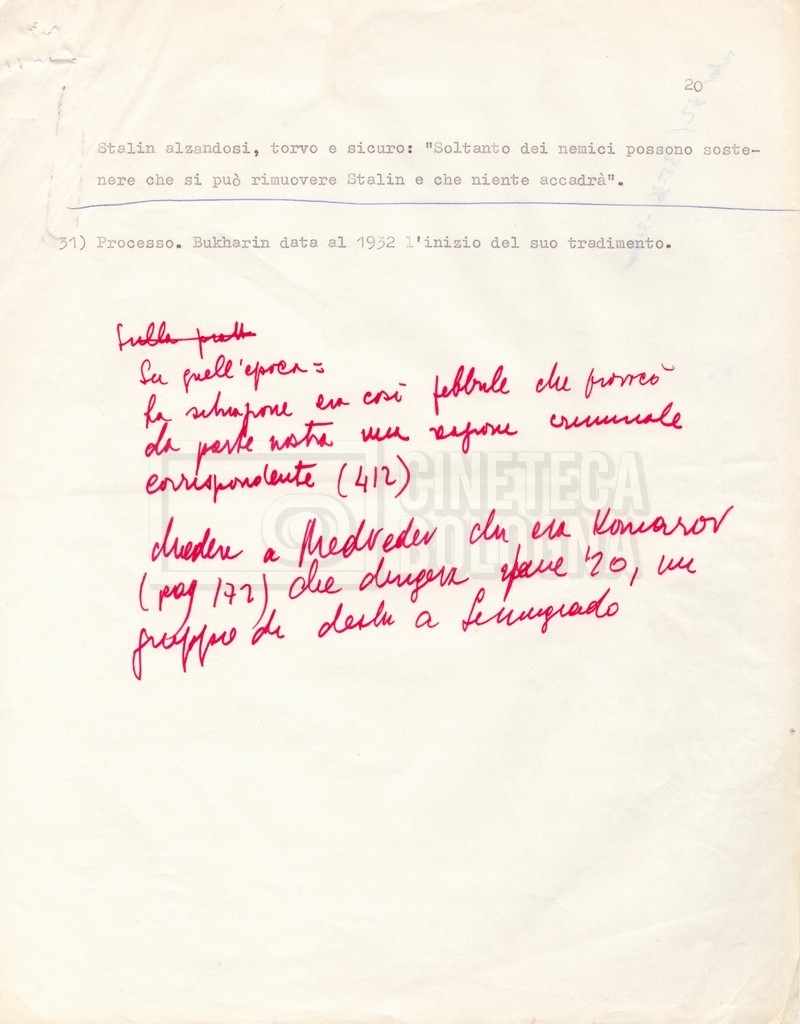 20
Stalin alzandosi, torvo e sicuro: "Soltanto dei nemici possono soste-
nere che si può rimuovere Stalin e che niente accadrà".
31) Processo. Bukharin data al 1932 l'inizio del suo tradimento.
Sulla
Su quell'epoca =
La situazione era così febbrile che provocò
da parte nostra una criminale
corrispondente (412)
CINETECA
BOLOGNA
chiedere a Medvedev chi era Komarov
(pag 172) che dirigeva fine '20, un
gruppo di destra a Leningrado